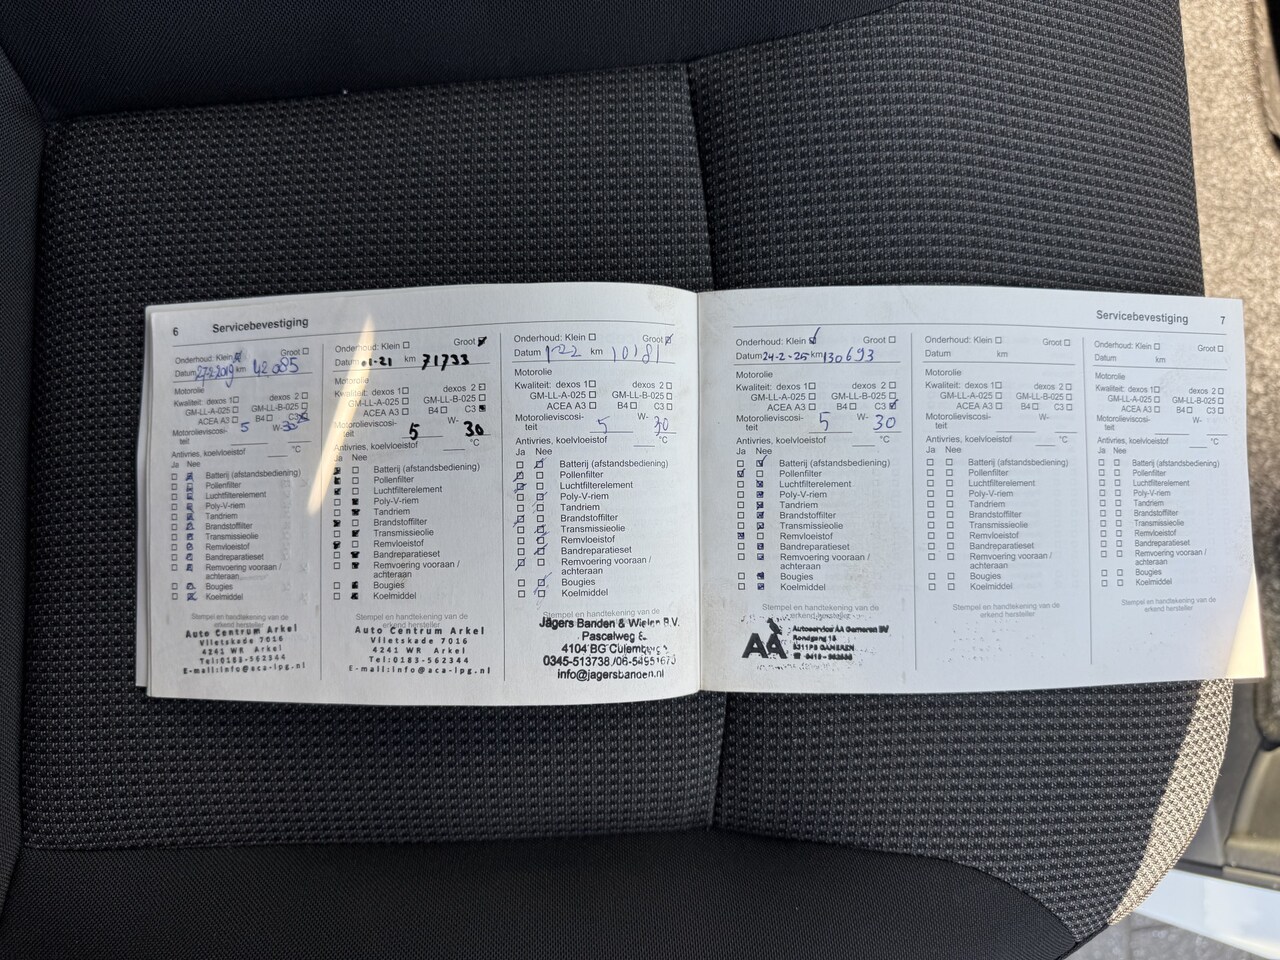 6 Servicebevestiging
Onderhoud: Klein Groot
Datum 27-2-2019 km 42085
Motorolie
Kwaliteit: dexos 1 dexos 2
GM-LL-A-025 GM-LL-B-025
ACEA A3 B4 C3
Motorolieviscosi- 5 W- 30
teit
Antivries, koelvloeistof °C
Ja Nee
Batterij (afstandsbediening)
Pollenfilter
Luchtfilterelement
Poly-V-riem
Tandriem
Brandstoffilter
Transmissieolie
Remvloeistof
Bandreparatieset
Remvoering vooraan /
achteraan
Bougies
Koelmiddel
Stempel en handtekening van de
erkend hersteller
Auto Centrum Arkel
Vlietskade 7016
4241 WR Arkel
Tel:0183-562344
E-mail:info@aca-lpg.nl
Onderhoud: Klein Groot
Datum 01-21 km 71733
Motorolie
Kwaliteit: dexos 1 dexos 2
GM-LL-A-025 GM-LL-B-025
ACEA A3 B4 C3
Motorolieviscosi- W-
teit 5 30
Antivries, koelvloeistof °C
Ja Nee
Batterij (afstandsbediening)
Pollenfilter
Luchtfilterelement
Poly-V-riem
Tandriem
Brandstoffilter
Transmissieolie
Remvloeistof
Bandreparatieset
Remvoering vooraan /
achteraan
Bougies
Koelmiddel
Stempel en handtekening van de
erkend hersteller
Auto Centrum Arkel
Vlietskade 7016
4241 WR Arkel
Tel:0183-562344
E-mail:info@aca-lpg.nl
Onderhoud: Klein Groot
Datum 1-22 km 10181
Motorolie
Kwaliteit: dexos 1 dexos 2
GM-LL-A-025 GM-LL-B-025
ACEA A3 B4 C3
Motorolieviscosi- W-
teit 5 30
Antivries, koelvloeistof °C
Ja Nee
Batterij (afstandsbediening)
Pollenfilter
Luchtfilterelement
Poly-V-riem
Tandriem
Brandstoffilter
Transmissieolie
Remvloeistof
Bandreparatieset
Remvoering vooraan /
achteraan
Bougies
Koelmiddel
Stempel en handtekening van de
erkend hersteller
Jägers Banden & Wielen B.V.
Pascalweg
4104 BG Culemborg
0345-513738
info@jagersbanden.nl
Servicebevestiging 7
Onderhoud: Klein Groot
Datum 24-2-25 km 130693
Motorolie
Kwaliteit: dexos 1 dexos 2
GM-LL-A-025 GM-LL-B-025
ACEA A3 B4 C3
Motorolieviscosi- W-
teit 5 30
Antivries, koelvloeistof °C
Ja Nee
Batterij (afstandsbediening)
Pollenfilter
Luchtfilterelement
Poly-V-riem
Tandriem
Brandstoffilter
Transmissieolie
Remvloeistof
Bandreparatieset
Remvoering vooraan /
achteraan
Bougies
Koelmiddel
Stempel en handtekening van de
erkend hersteller
AA Autoservice AA Gameren BV
5311 PB GAMEREN
Onderhoud: Klein Groot
Datum km
Motorolie
Kwaliteit: dexos 1 dexos 2
GM-LL-A-025 GM-LL-B-025
ACEA A3 B4 C3
Motorolieviscosi- W-
teit
Antivries, koelvloeistof °C
Ja Nee
Batterij (afstandsbediening)
Pollenfilter
Luchtfilterelement
Poly-V-riem
Tandriem
Brandstoffilter
Transmissieolie
Remvloeistof
Bandreparatieset
Remvoering vooraan /
achteraan
Bougies
Koelmiddel
Stempel en handtekening van de
erkend hersteller
Onderhoud: Klein Groot
Datum km
Motorolie
Kwaliteit: dexos 1 dexos 2
GM-LL-A-025 GM-LL-B-025
ACEA A3 B4 C3
Motorolieviscosi- W-
teit
Antivries, koelvloeistof °C
Ja Nee
Batterij (afstandsbediening)
Pollenfilter
Luchtfilterelement
Poly-V-riem
Tandriem
Brandstoffilter
Transmissieolie
Remvloeistof
Bandreparatieset
Remvoering vooraan /
achteraan
Bougies
Koelmiddel
Stempel en handtekening van de
erkend hersteller